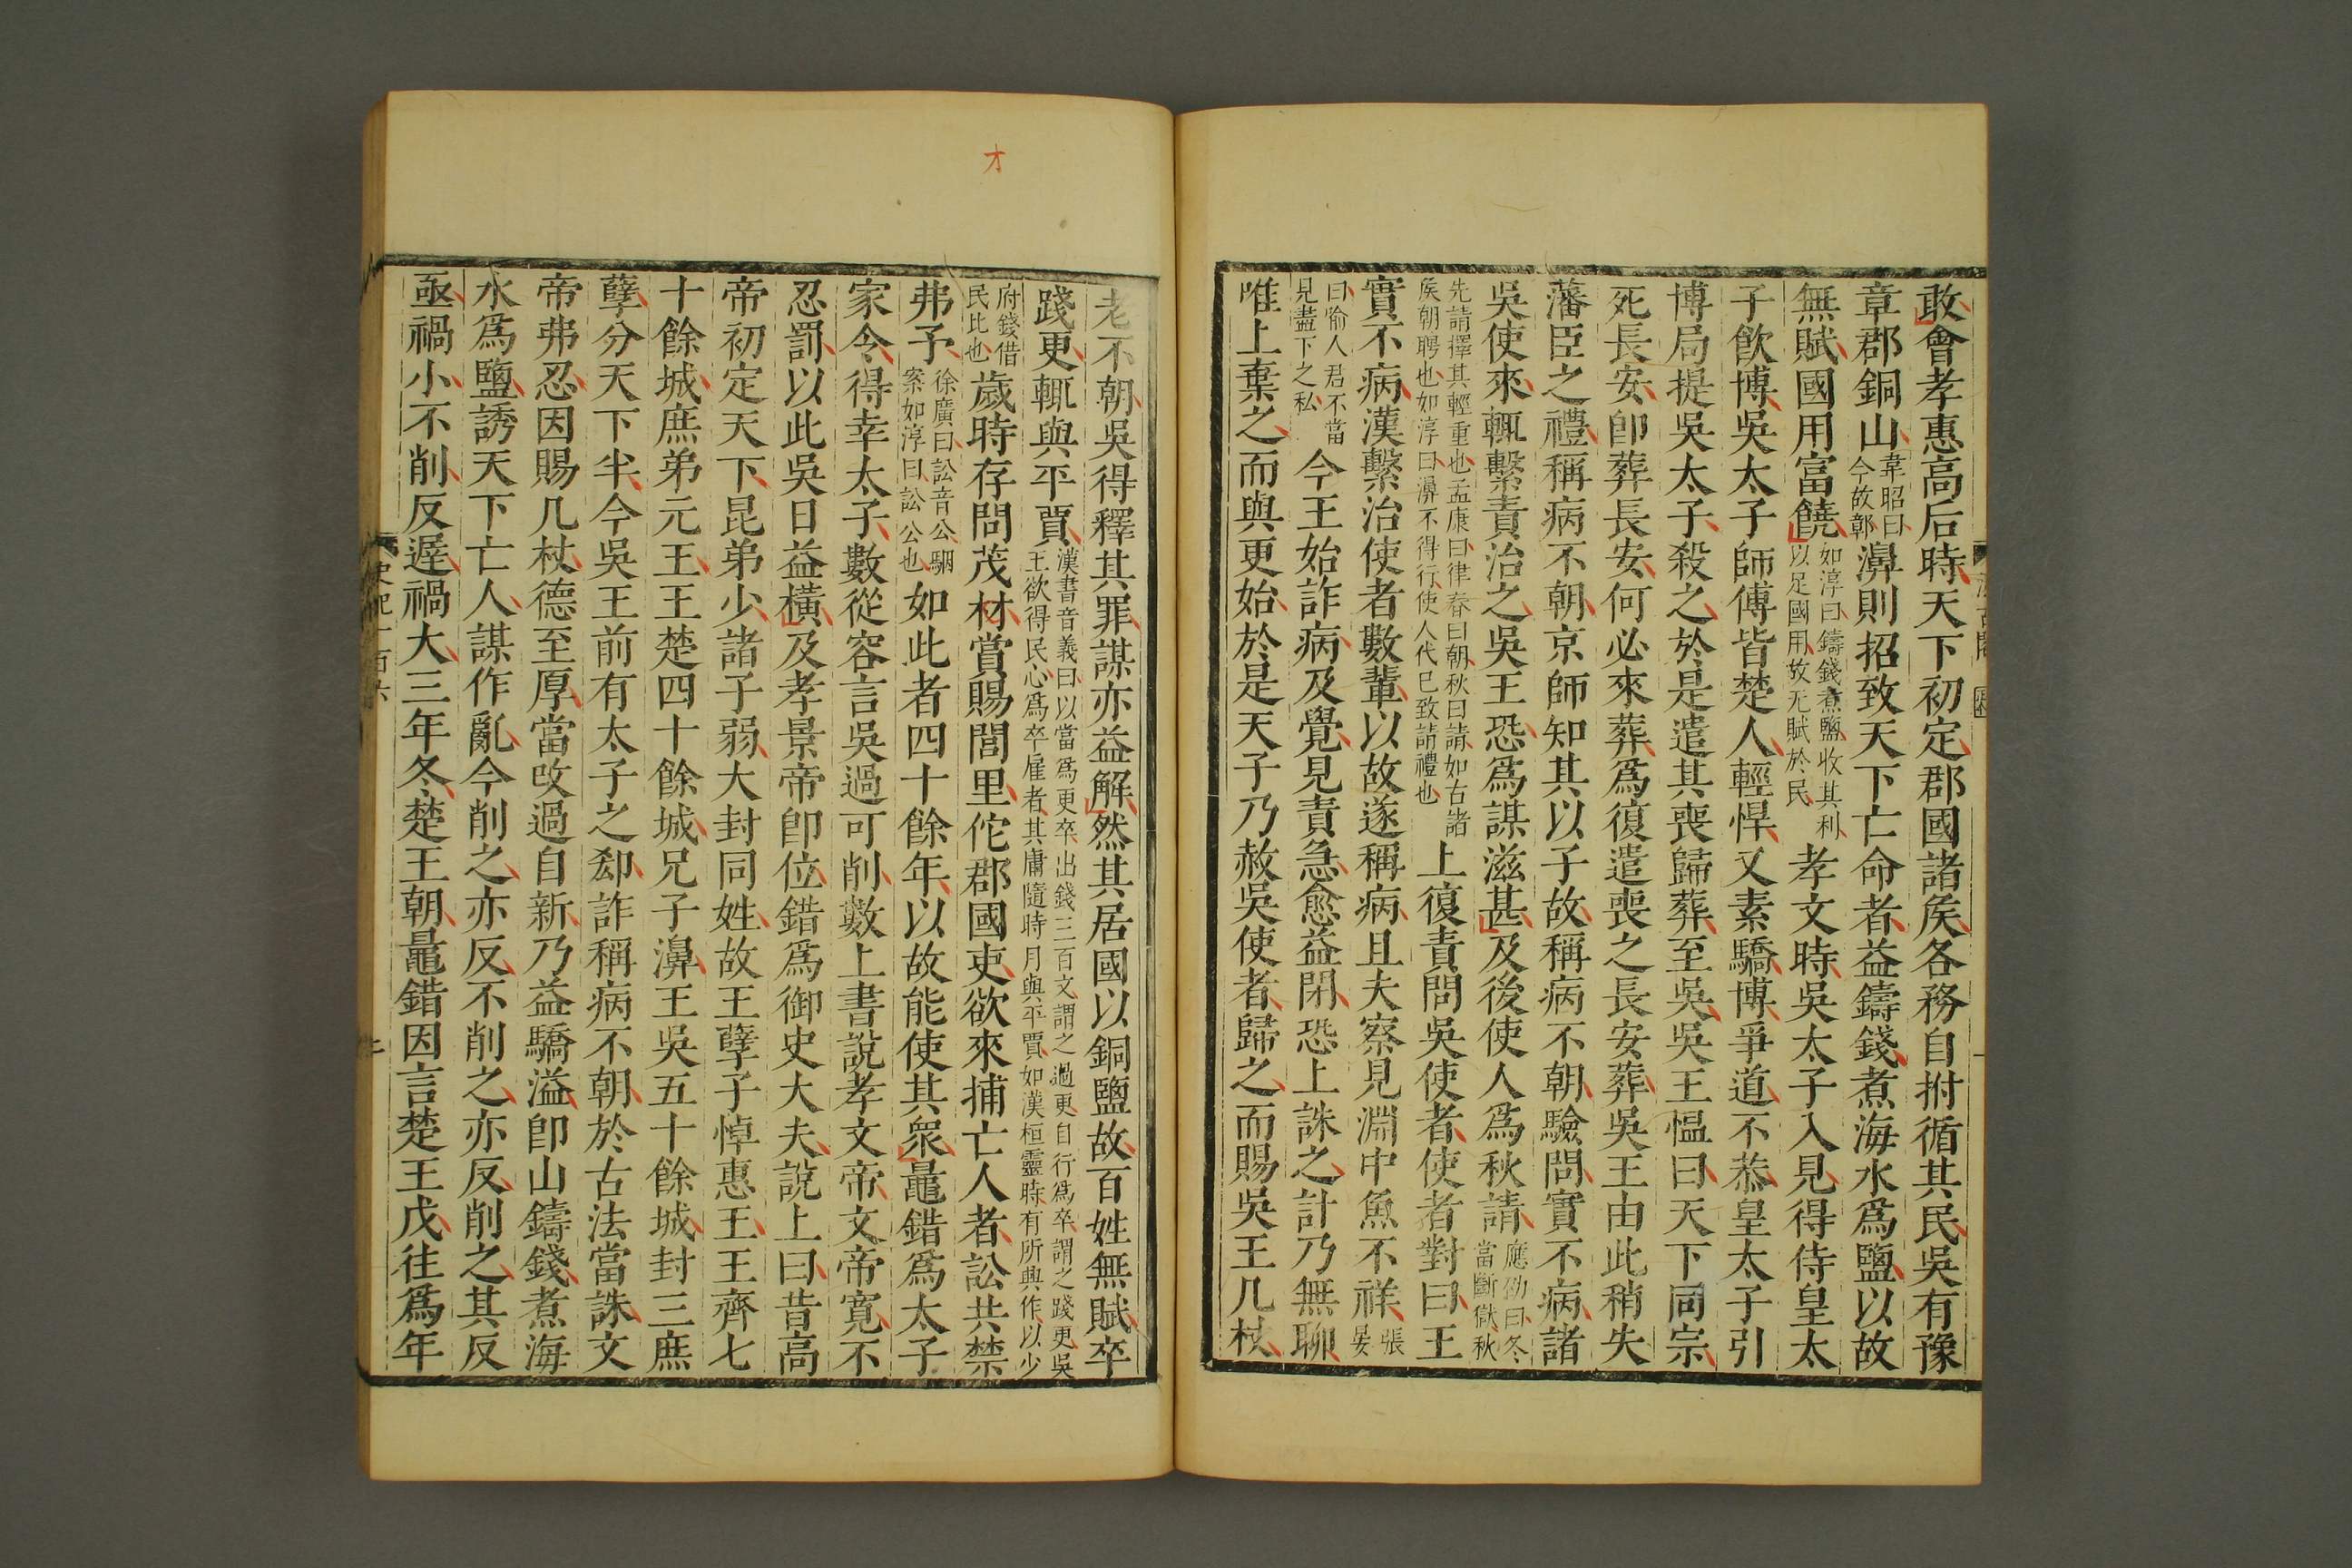 敢會孝惠高后時天下初定郡國諸矦各務自拊循其民吳有豫
章郡銅山韋昭曰今故鄣濞則招致天下亡命者益鑄錢煮海水爲鹽以故
無賦國用富饒如淳曰鑄錢煮鹽收其利以足國用故无賦於民孝文時吳太子入見得侍皇太
子飮博吳太子師傅皆楚人輕悍又素驕博爭道不恭皇太子引
博局提吳太子殺之於是遣其喪歸葬至吳吳王慍曰天下同宗
死長安卽葬長安何必來葬爲復遣喪之長安葬吳王由此稍失
藩臣之禮稱病不朝京師知其以子故稱病不朝驗問實不病諸
吳使來輒繫責治之吳王恐爲謀滋甚及後使人爲秋請應劭曰冬當斷獄秋
先請擇其輕重也孟康曰律春曰朝秋曰請如古諸矦朝聘也如淳曰濞不得行使人代已致請禮也上復責問吳使者使者對曰王
實不病漢繫治使者數輩以故遂稱病且夫察見淵中魚不祥張晏
曰喻人君不當見盡下之私今王始詐病及覺見責急愈益閉恐上誅之計乃無聊
唯上棄之而與更始於是天子乃赦吳使者歸之而賜吳王几杖
老不朝吳得釋其罪謀亦益解然其居國以銅鹽故百姓無賦卒
踐更輒與平賈漢書音義曰以當爲更卒出錢三百文謂之過更自行爲卒謂之踐更吳王欲得民心爲卒雇者其庸隨時月與平賈如漢桓靈時有所興作以少
府錢借民比也歲時存問茂材賞賜閭里佗郡國吏欲來捕亡人者訟共禁
弗予徐廣曰訟音公駰案如淳曰訟公也如此者四十餘年以故能使其衆鼂錯爲太子
家令得幸太子數從容言吳過可削數上書說孝文帝文帝寬不
忍罰以此吳日益橫及孝景帝卽位錯爲御史大夫說上曰昔高
帝初定天下昆弟少諸子弱大封同姓故王孼子悼惠王王齊七
十餘城庶弟元王王楚四十餘城兄子濞王吳五十餘城封三庶
孼分天下半今吳王前有太子之郄詐稱病不朝於古法當誅文
帝弗忍因賜几杖德至厚當改過自新乃益驕溢卽山鑄錢煮海
水爲鹽誘天下亡人謀作亂今削之亦反不削之亦反削之其反
亟禍小不削反遲禍大三年冬楚王朝鼂錯因言楚王戊往爲年
史記一百六
二